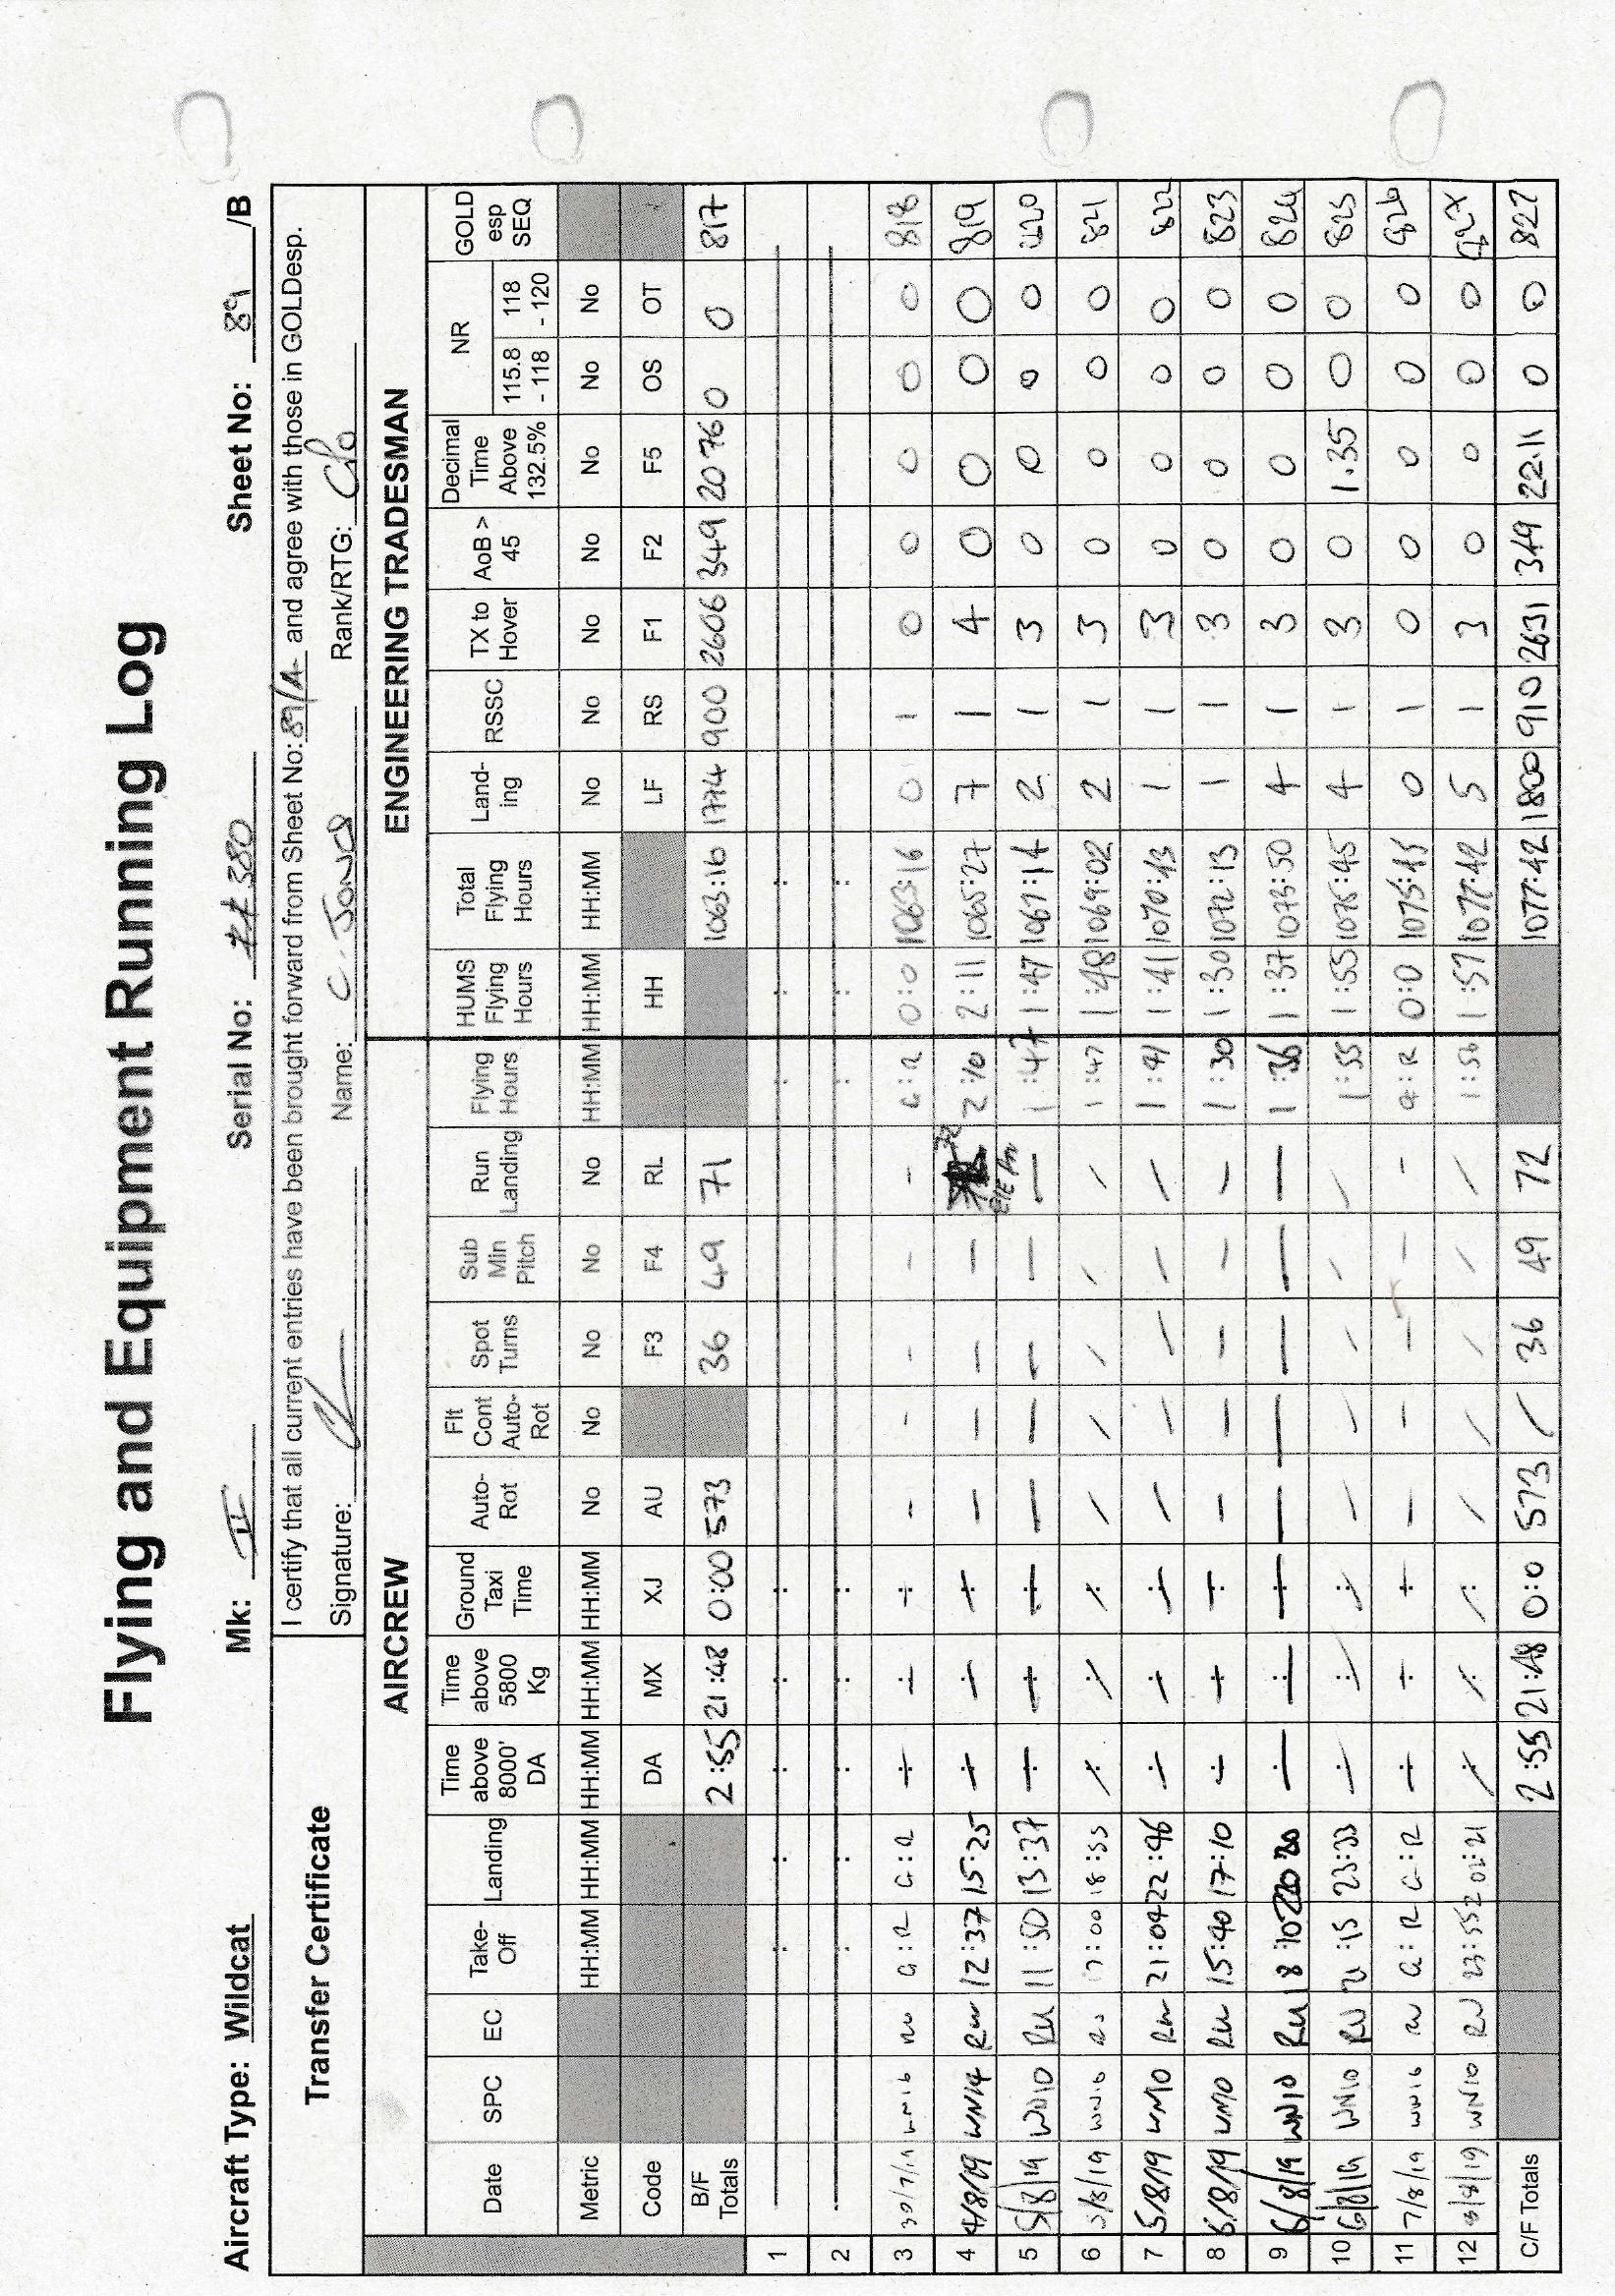 Flying and Equipment Running Log
Aircraft Type: Wildcat Mk: II Serial No: ZZ380 Sheet No: 89 /B
Transfer Certificate
I certify that all current entries have been brought forward from Sheet No: 89/A and agree with those in GOLDesp.
Signature: Name: C. JONES Rank/RTG: CPO
AIRCREW ENGINEERING TRADESMAN
Date SPC EC Take-Off Landing Time above 8000' DA Time above 5800 Kg Ground Taxi Time Auto-Rot Flt Cont Auto-Rot Spot Turns Sub Min Pitch Run Landing Flying Hours HUMS Flying Hours Total Flying Hours Land-ing RSSC TX to Hover AoB > 45 Decimal Time Above 132.5% NR 115.8 - 118 118 - 120 GOLD esp SEQ
Metric HH:MM HH:MM HH:MM HH:MM HH:MM No No No No No HH:MM HH:MM HH:MM No No No No No No No
Code DA MX XJ AU F3 F4 RL HH LF RS F1 F2 F5 OS OT
B/F Totals 2:55 21:48 0:00 573 36 49 71 1063:16 1774 900 2606 349 20 76 0 0 817
1 : : : : : : : :
2 : : : : : : : :
3 30/7/19 WN16 RW G:R G:R - : - : - : - - - - - G:R 0:0 1063:16 0 1 0 0 0 0 0 818
4 4/8/19 WN14 RW 12:37 15:25 - : - : - : - - - - 72 2:10 2:11 1065:27 7 1 4 0 0 0 0 819
5 5/8/19 WN10 RW 11:50 13:37 - : - : - : - - - - - 1:47 1:47 1067:14 2 1 3 0 0 0 0 820
6 5/8/19 WN10 RW 17:00 18:55 / : / : / : / / / / / 1:47 1:48 1069:02 2 1 3 0 0 0 0 821
7 5/8/19 WN10 RW 21:04 22:46 - : - : - : - - - - - 1:41 1:41 1070:43 1 1 3 0 0 0 0 822
8 6/8/19 WN10 RW 15:40 17:10 - : - : - : - - - - - 1:30 1:30 1072:13 1 1 3 0 0 0 0 823
9 6/8/19 WN10 RW 18:10 20 - : - : - : - - - - - 1:36 1:37 1073:50 4 1 3 0 0 0 0 824
10 6/8/19 WN10 RW 21:15 23:33 / : / : / : / / / / / 1:55 1:55 1075:45 4 1 3 0 1.35 0 0 825
11 7/8/19 WN16 RW G:R G:R - : - : - : - - - - - G:R 0:0 1075:45 0 1 0 0 0 0 0 826
12 8/8/19 WN10 RW 23:55 02:21 / : / : / : / / / / / 1:56 1:57 1077:42 5 1 3 0 0 0 0 827
C/F Totals 2:55 21:48 0:0 573 / 36 49 72 1077:42 1800 910 2631 349 22.11 0 0 827